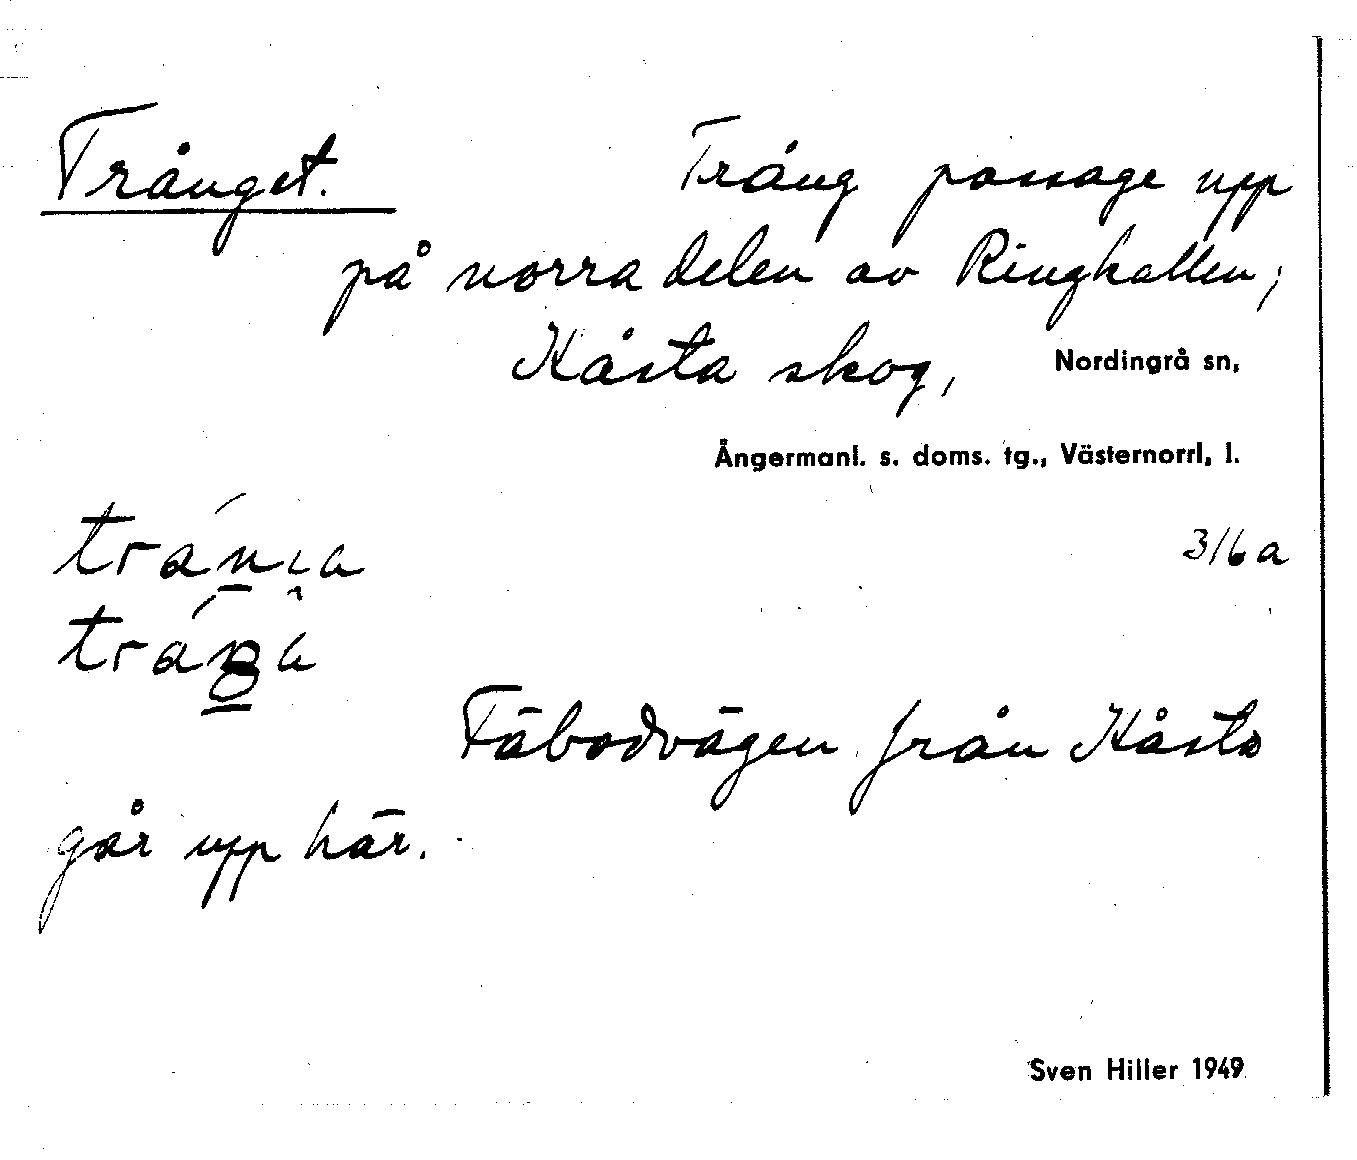 Trånget. Trång passage upp
på norra delen av Ringkallen;
Kåsta skog, Nordingrå sn,
Ångermanl. s. doms. tg., Västernorrl, l.
3/6a
Fäbodvägen från Kåsta
går upp här.
Sven Hiller 1949